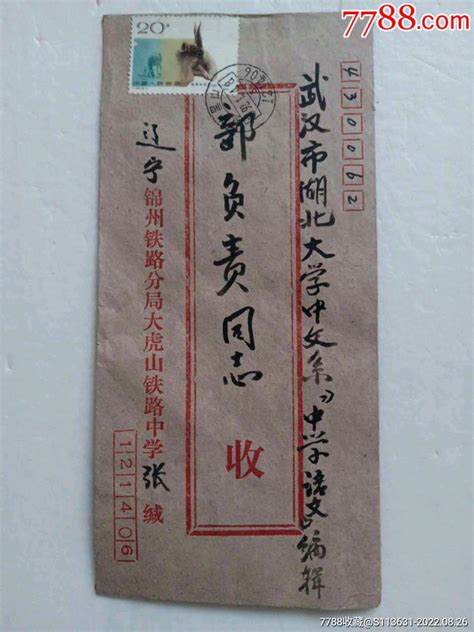 7788.com
20分
中国人民邮政
430062
武汉市湖北大学中文系《中学语文》编辑
部负责同志 收
辽宁锦州铁路分局大虎山铁路中学张缄
121406
7788收藏@S113631-2022.08.26